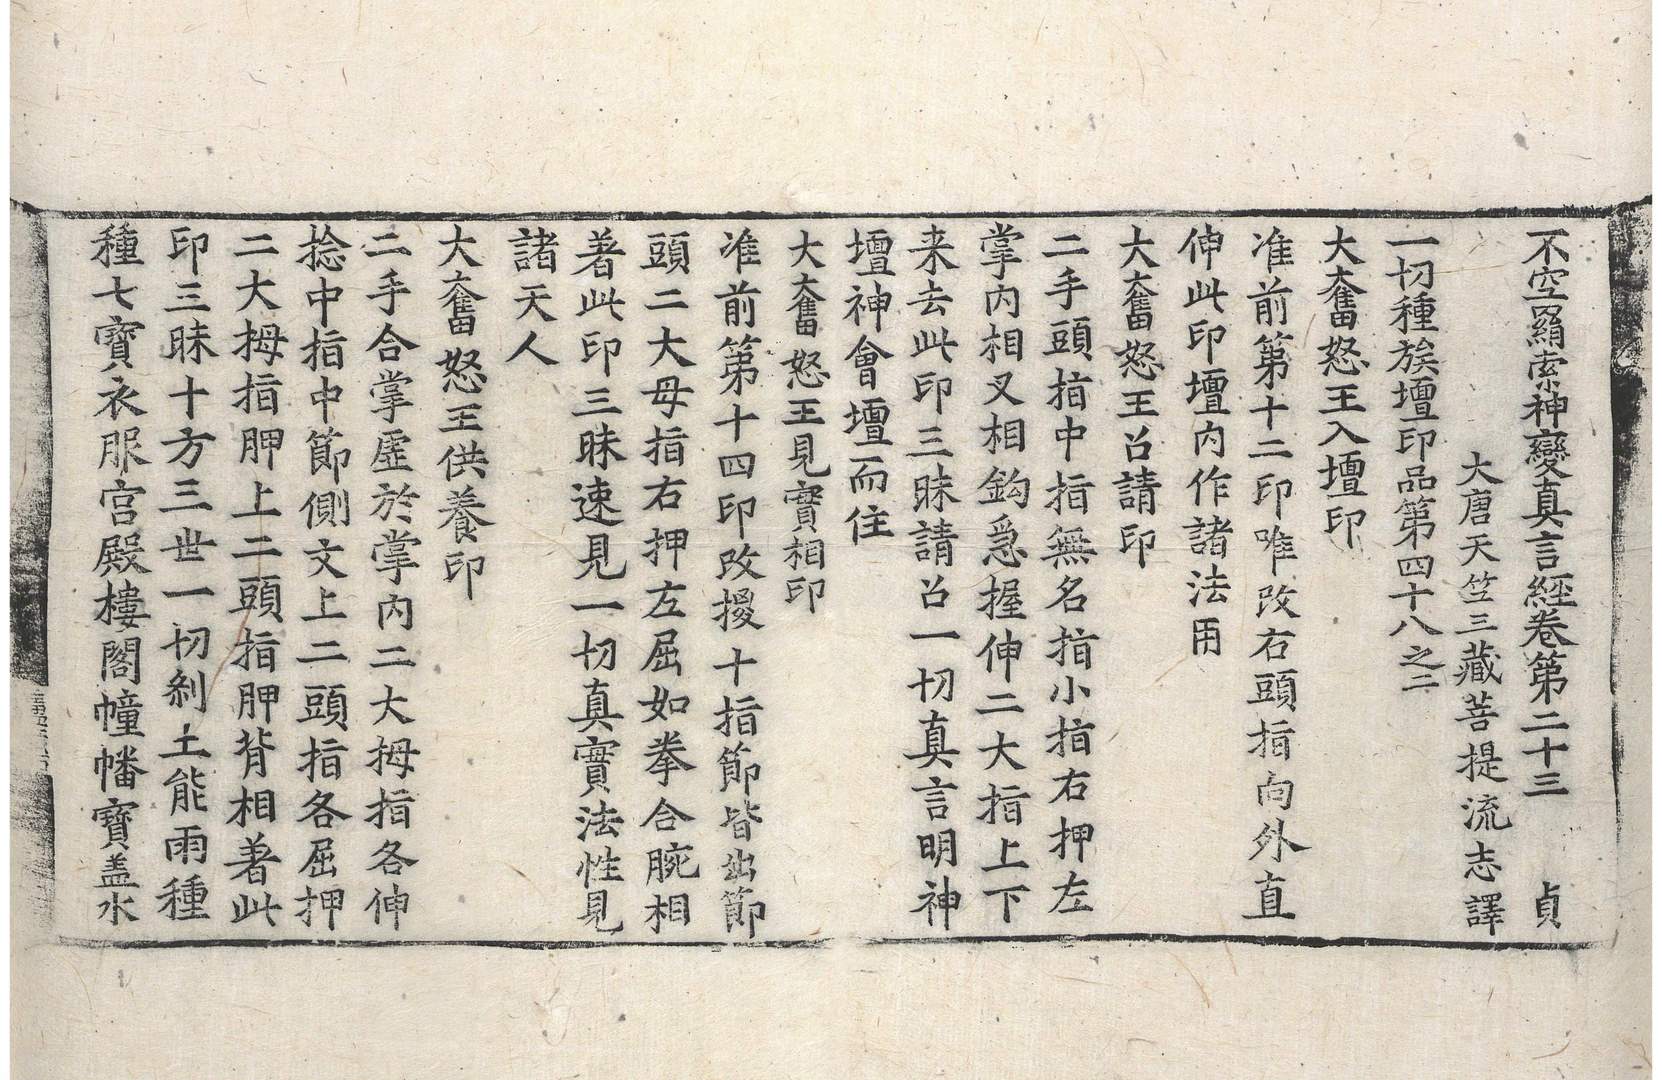 不空羂索神變真言經卷第二十三 貞
大唐天竺三藏菩提流志譯
一切種族壇印品第四十八之二
大奮怒王入壇印
准前第十二印唯改右頭指向外直
伸此印壇內作諸法用
大奮怒王召請印
二手頭指中指無名指小指右押左
掌內相叉相鉤急握伸二大指上下
来去此印三昧請召一切真言明神
壇神會壇而住
大奮怒王見實相印
准前第十四印改擾十指節皆出節
頭二大母指右押左屈如拳合腕相
著此印三昧速見一切真實法性見
諸天人
大奮怒王供養印
二手合掌虛於掌內二大拇指各伸
捻中指中節側文上二頭指各屈押
二大拇指胛上二頭指胛背相著此
印三昧十方三世一切剎土能雨種
種七寶衣服宮殿樓閣幢幡寶盖水